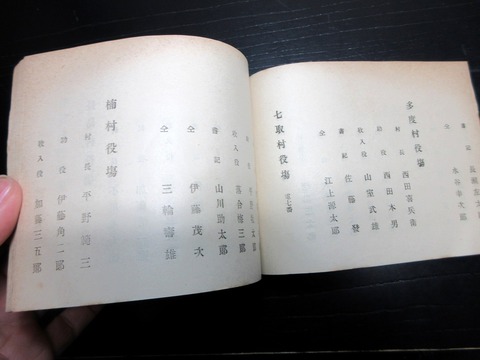 書記 長瀬
仝 水谷
多度村役場
村長 西田喜兵衛
助役 西田本男
收入役 山室武雄
書記 佐藤發
仝 江上源太郎
七取村役場 電七番
收入役 落合椿三郎
書記 山川助太郎
仝 伊藤茂次
仝 三輪審雄
楠村役場
村長 平野
助役 伊藤角二郎
收入役 加藤三五郎